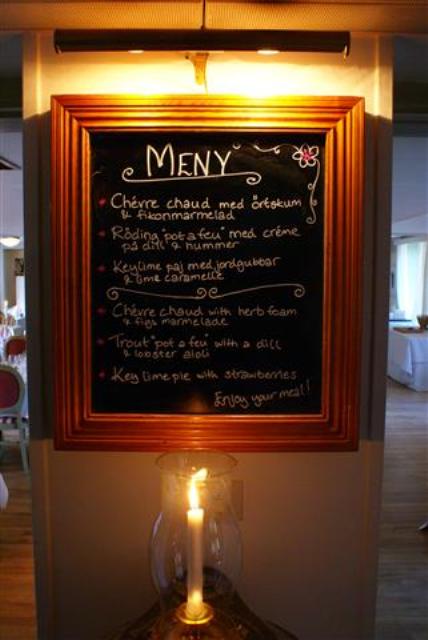 MENY
Chévre chaud med örtskum
& fikonmarmelad
Röding "pot a feu" med créme
på dill & hummer
Keylime paj med jordgubbar
& lime caramelle
Chévre chaud with herb foam
& figs marmelade
Trout "pot a feu" with a dill
& lobster aioli
Key lime pie with strawberries
Enjoy your meal!